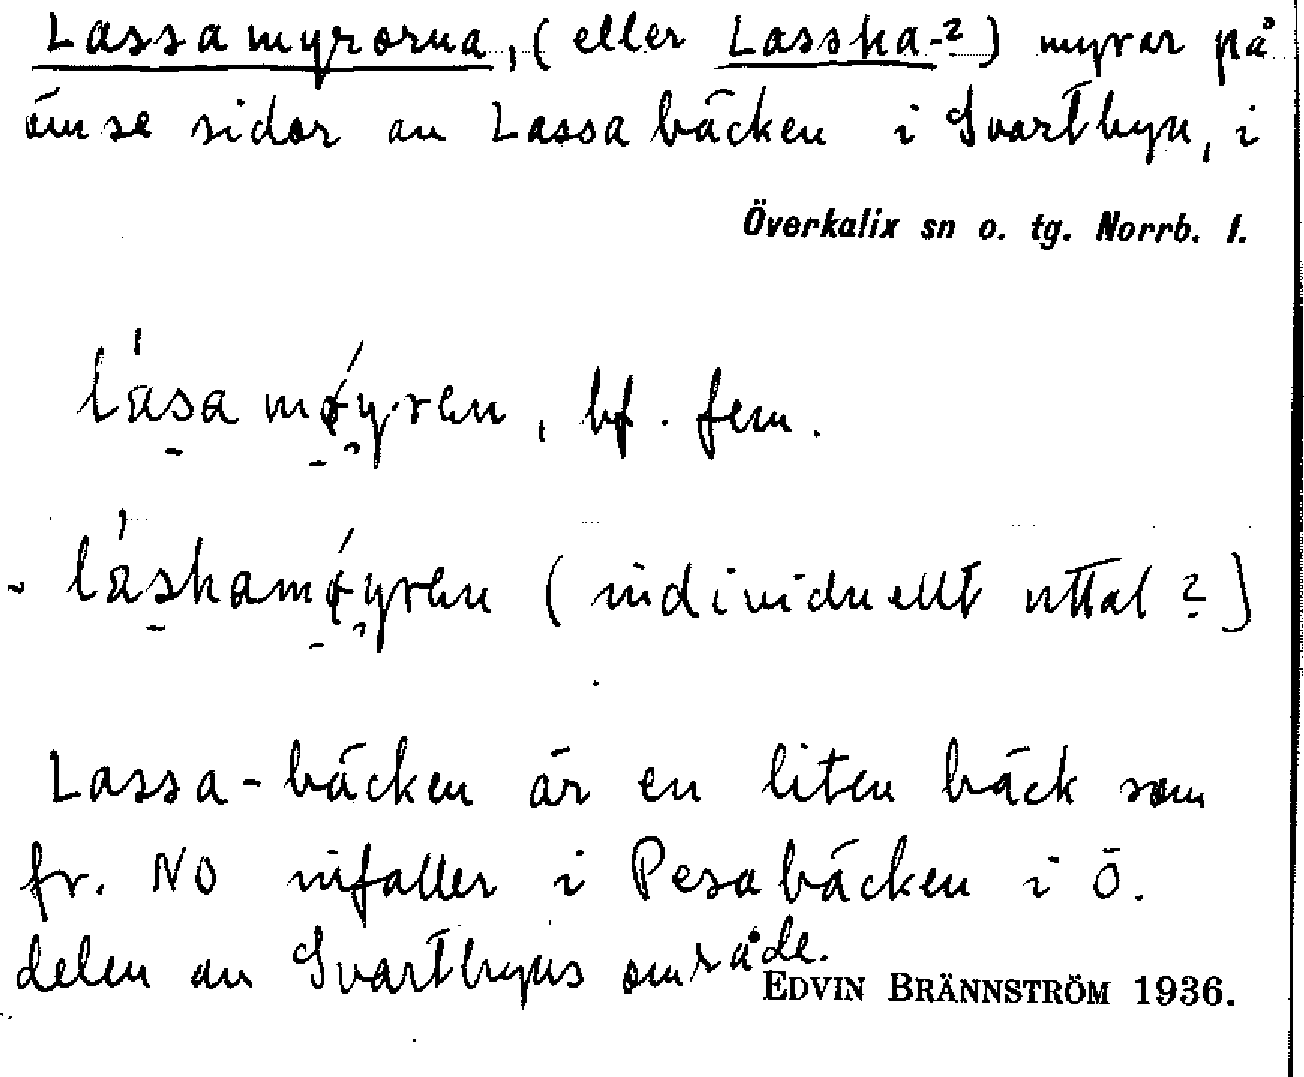 Lassamyrorna, (eller Lasska-?) myrar på
ömse sidor av Lassabäcken i Svartbyn, i
Överkalix sn o. tg. Norrb. l.
lásamǿyren, bf. fem.
- láskamǿyren (individuellt uttal?)
Lassa-bäcken är en liten bäck som
fr. NO infaller i Pesabäcken i ö.
delen av Svartbyns område.
EDVIN BRÄNNSTRÖM 1936.